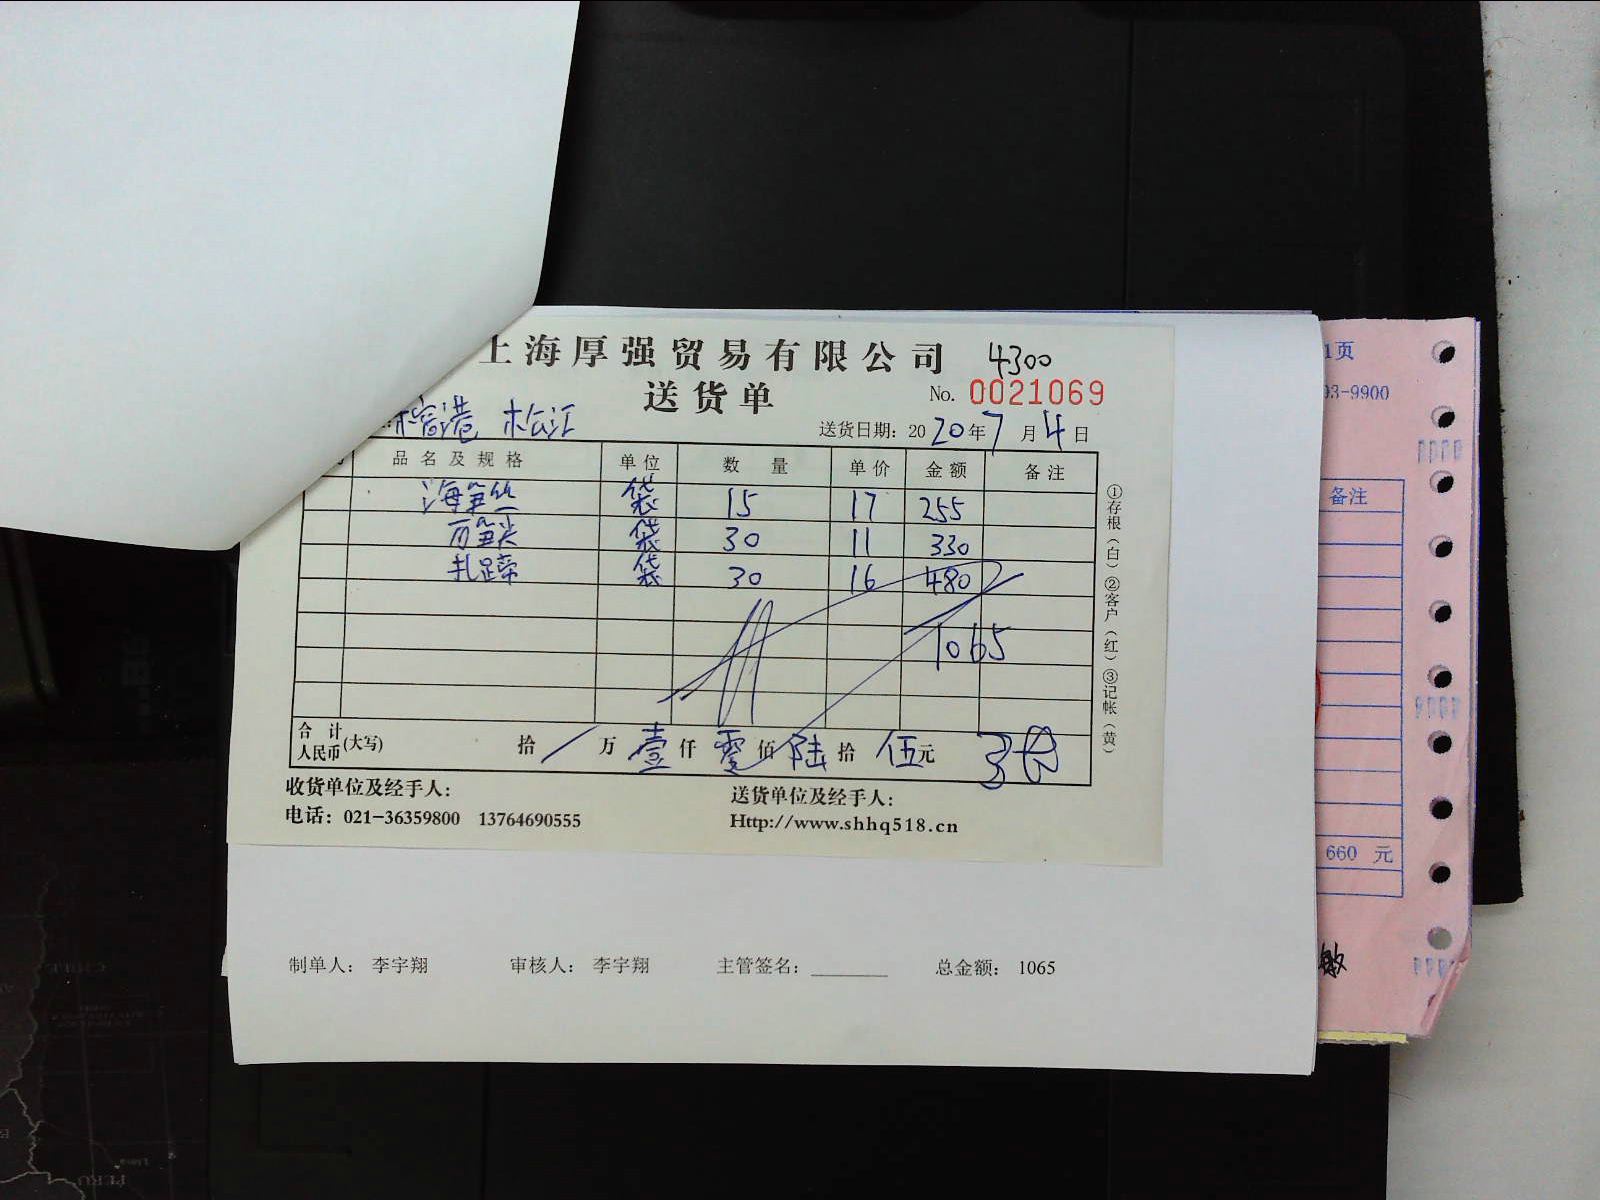 上海厚强贸易有限公司 4300
送货单 No. 0021069
榕港 松江 送货日期: 2020年7月4日
品名及规格 单位 数量 单价 金额 备注
海笋丝 袋 15 17 255
万笋尖 袋 30 11 330
扎蹄 袋 30 16 480
1065
合计人民币(大写) 拾/万壹仟零佰陆拾伍元
收货单位及经手人: 送货单位及经手人:
电话: 021-36359800 13764690555 Http://www.shhq518.cn
①存根(白)②客户(红)③记帐(黄)
制单人: 李宇翔 审核人: 李宇翔 主管签名: 总金额: 1065
1页
93-9900
备注
660 元
敏